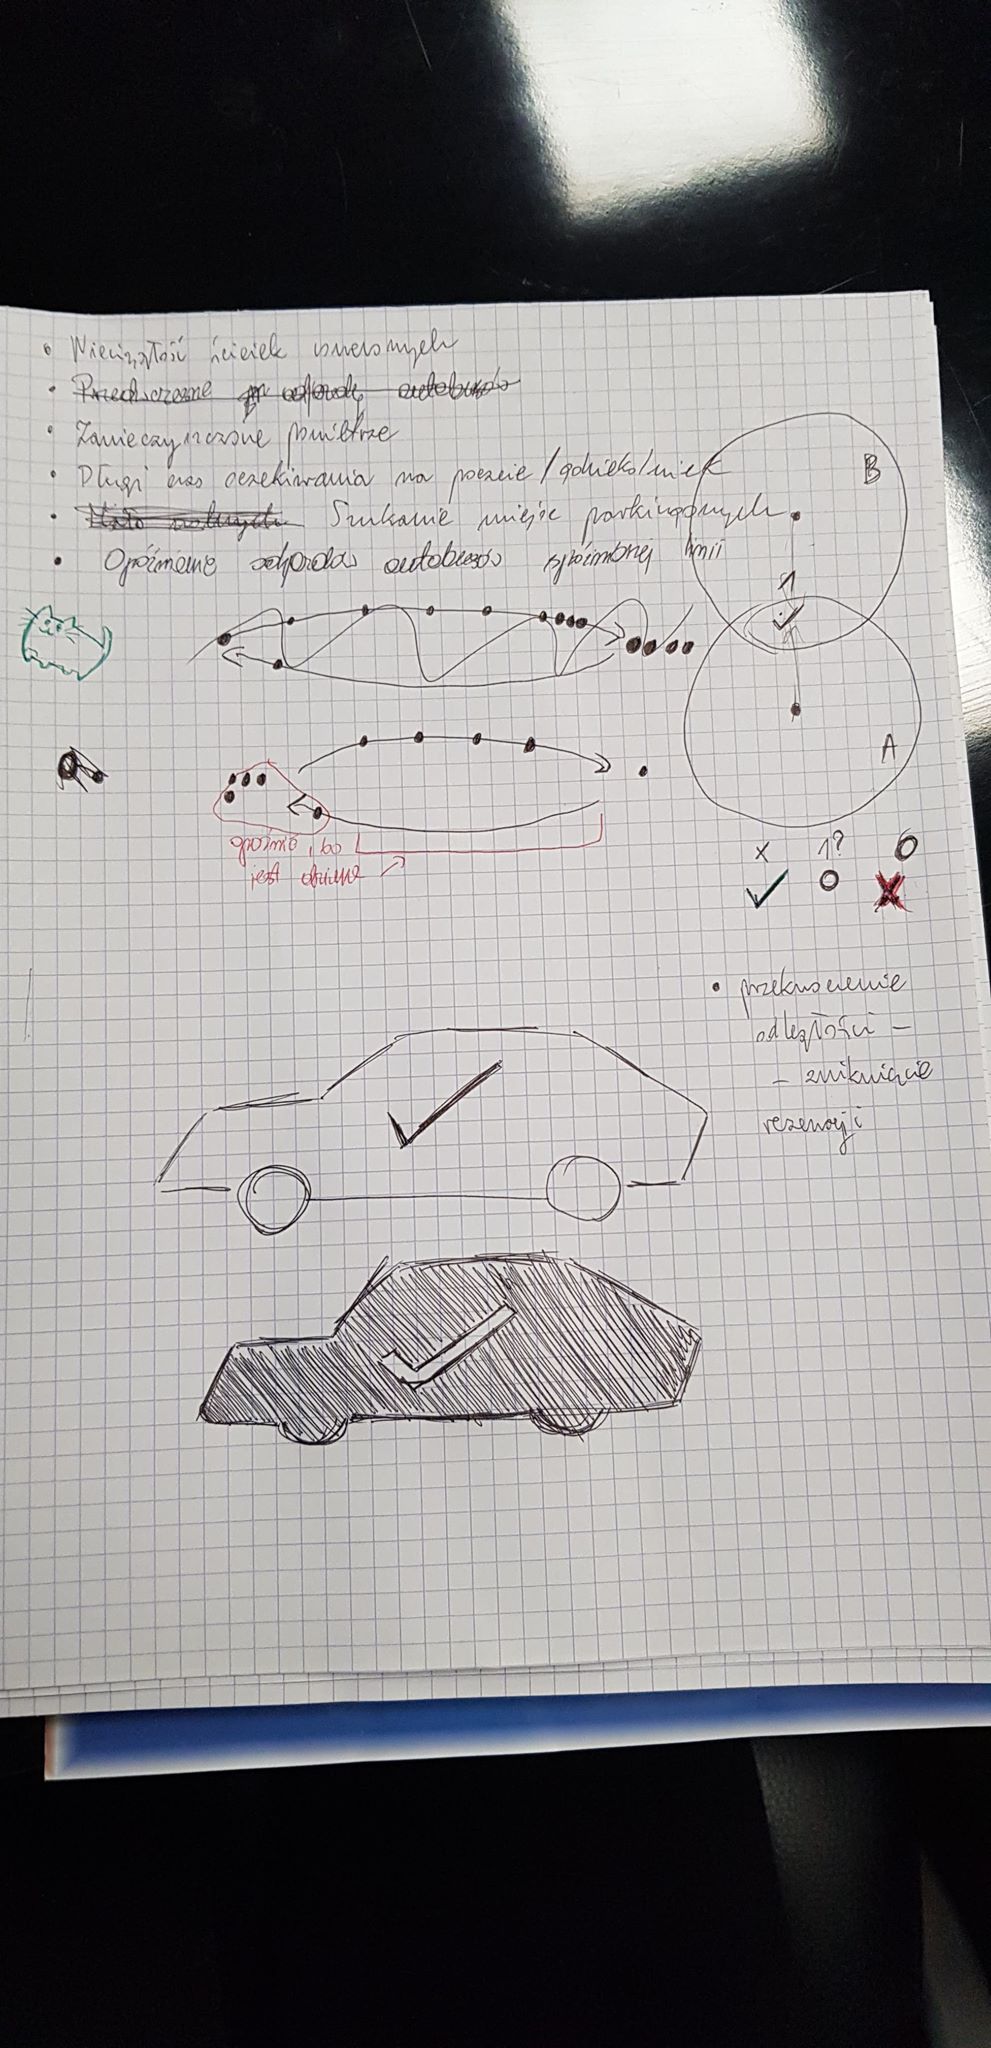 Nieciągłość ścieżek rowerowych
Przedwczesne odjazdy autobusów
Zanieczyszczone powietrze
Długi czas oczekiwania na poczcie / gdziekolwiek
Szukanie miejsc parkingowych
Opóźnianie odjazdów autobusów spóźnionej linii
B
1
A
opóźnić, bo
jest dziura
x 1? 0
✓ 0 X
przekroczenie
odległości -
- zniknięcie
rezerwacji